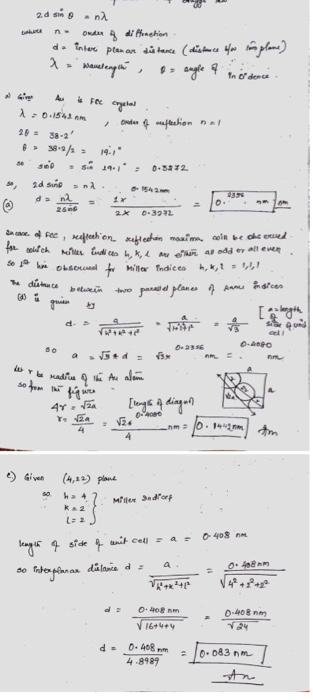 2d sin θ = nλ
where n = order of diffraction
d = inter planar distance (distance b/w two plane)
λ = wavelength, θ = angle of incidence.
Given Au is FCC crystal
λ = 0.1542 nm, order of reflection n = 1
2θ = 38.2°
θ = 38.2/2 = 19.1°
so sinθ = sin 19.1° = 0.3272
so, 2d sinθ = nλ
(a) d = nλ / 2sinθ = 1 × 0.1542nm / 2 × 0.3272 = 0.2356 nm
Incase of FCC, reflection maxima will be observed
for which Miller indices h, k, l are either all odd or all even
so 1st line observed for Miller indices h, k, l = 1,1,1
The distance between two parallel planes of same indices
(d) is given by
d = a / √h²+k²+l² = a / √1+1+1 = a / √3 [a = length of side of unit cell]
so a = √3 × d = √3 × 0.2356 nm = 0.4080 nm
let r be radius of the Au atom
so from the figure
4r = √2a [length of diagnol]
r = √2a / 4 = √2 × 0.4080 / 4 nm = 0.1442 nm Ans
c) Given (4,22) plane
so h = 4
k = 2 } Miller Indices
l = 2
length of side of unit cell = a = 0.408 nm
so interplanar distance d = a / √h²+k²+l² = 0.408 nm / √4²+2²+2²
d = 0.408 nm / √16+4+4 = 0.408 nm / √24
d = 0.408 nm / 4.8989 = 0.083 nm
Ans